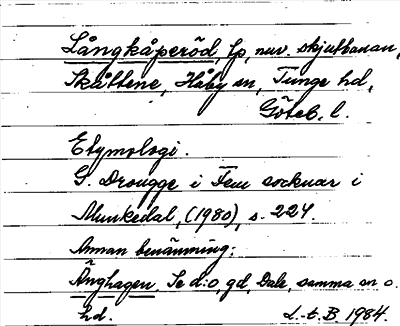 Långkåperöd, lp, nuv. skjutbanan,
Skåttene, Håby sn, Tunge hd,
Göteb. l.
Etymologi.
G. Drougge i Fem socknar i
Munkedal, (1980), s. 224.
Annan benämning:
Änghagen. Se d:o, gd, Dale, samma sn o.
hd.
L.-t. B 1984.